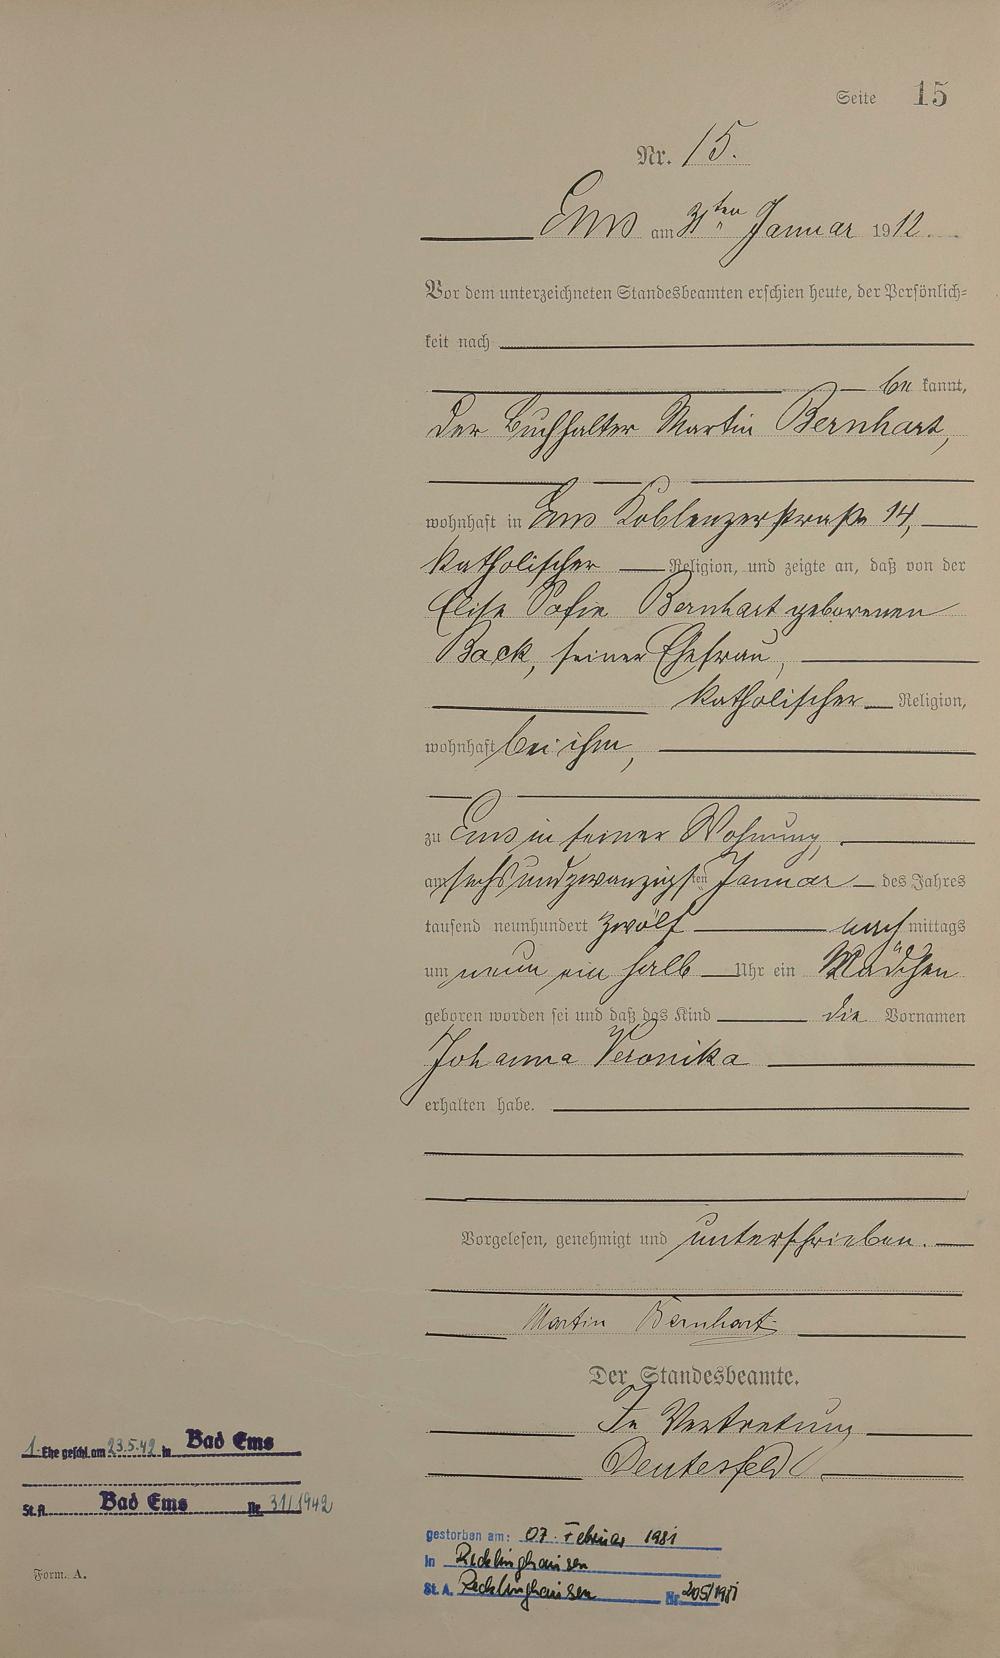 Seite 15
Nr. 15.
Ems am 31ten Januar 1912.
Vor dem unterzeichneten Standesbeamten erschien heute, der Persönlich-
keit nach
be kannt,
der Buchhalter Martin Bernhart,
wohnhaft in Ems Koblenzerstraße 14,
katholischer Religion, und zeigte an, daß von der
Elise Sofie Bernhart geborenen
Back, seiner Ehefrau,
katholischer Religion,
wohnhaft bei ihm,
zu Ems in seiner Wohnung,
am sechsundzwanzigsten Januar des Jahres
tausend neunhundert zwölf nach mittags
um neun ein halb Uhr ein Mädchen
geboren worden sei und daß das Kind die Vornamen
Johanna Veronika
erhalten habe.
Vorgelesen, genehmigt und unterschrieben.
Martin Bernhart
Der Standesbeamte.
In Vertretung
1. Ehe geschl. am 23.5.42 in Bad Ems
St. A. Bad Ems Nr. 31/1942
gestorben am: 07. Februar 1981
in Recklinghausen
St. A. Recklinghausen Nr. 205/1981
Form. A.